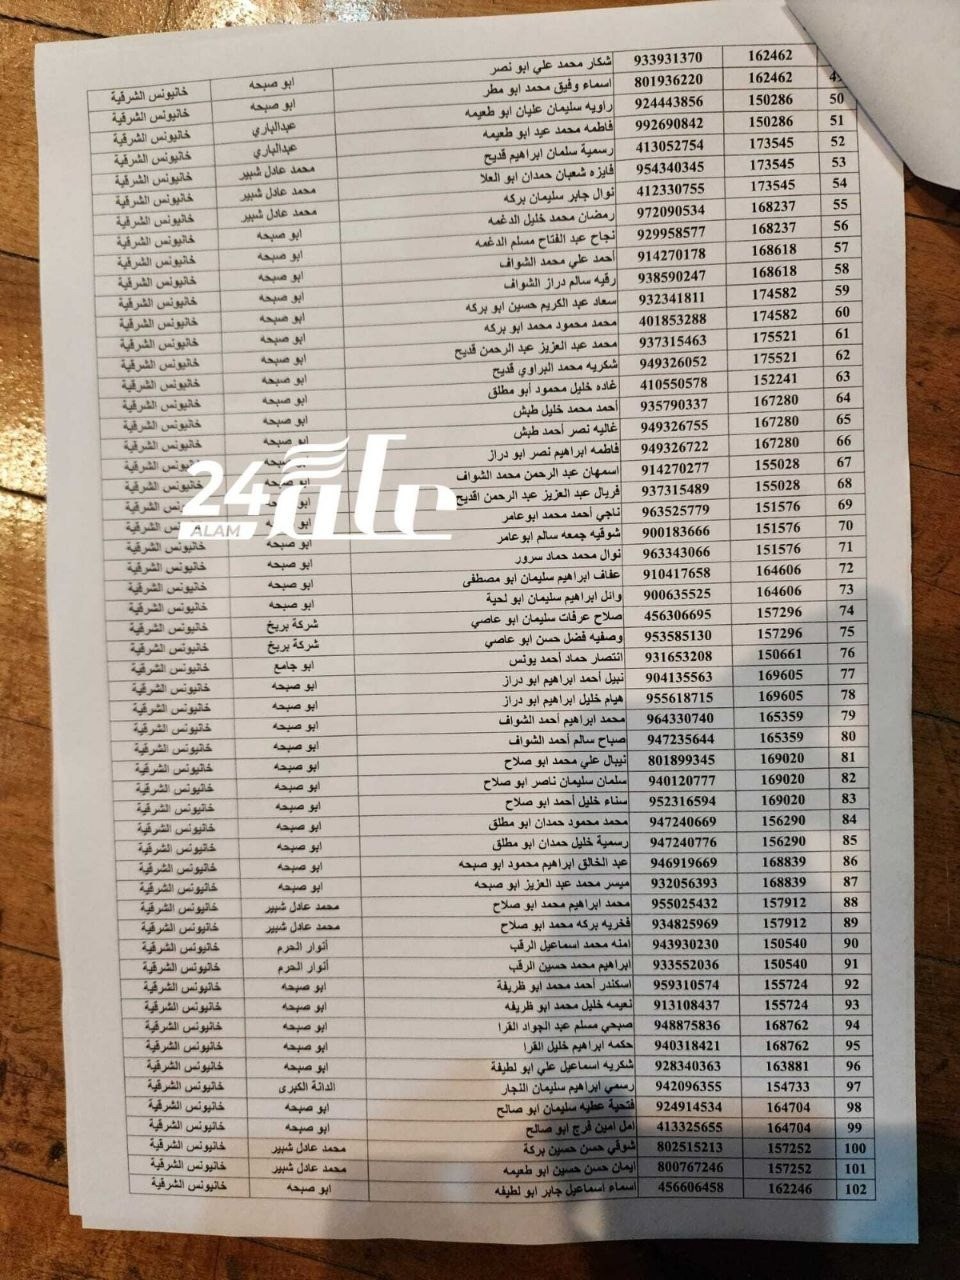 162462 933931370 شكار محمد علي ابو نصر ابو صبحه خانيونس الشرقية
49 162462 801936220 اسماء وفيق محمد ابو مطر ابو صبحه خانيونس الشرقية
50 150286 924443856 راويه سليمان عليان ابو طعيمه عبدالباري خانيونس الشرقية
51 150286 992690842 فاطمه محمد عيد ابو طعيمه عبدالباري خانيونس الشرقية
52 173545 413052754 رسمية سلمان ابراهيم قديح محمد عادل شبير خانيونس الشرقية
53 173545 954340345 فايزه شعبان حمدان ابو العلا محمد عادل شبير خانيونس الشرقية
54 173545 412330755 نوال جابر سليمان بركه محمد عادل شبير خانيونس الشرقية
55 168237 972090534 رمضان محمد خليل الدغمه ابو صبحه خانيونس الشرقية
56 168237 929958577 نجاح عبد الفتاح مسلم الدغمه ابو صبحه خانيونس الشرقية
57 168618 914270178 أحمد علي محمد الشواف ابو صبحه خانيونس الشرقية
58 168618 938590247 رقيه سالم دراز الشواف ابو صبحه خانيونس الشرقية
59 174582 932341811 سعاد عبد الكريم حسين ابو بركه ابو صبحه خانيونس الشرقية
60 174582 401853288 محمد محمود محمد ابو بركه ابو صبحه خانيونس الشرقية
61 175521 937315463 محمد عبد العزيز عبد الرحمن قديح ابو صبحه خانيونس الشرقية
62 175521 949326052 شكريه محمد البراوي قديح ابو صبحه خانيونس الشرقية
63 152241 410550578 غاده خليل محمود أبو مطلق ابو صبحه خانيونس الشرقية
64 167280 935790337 أحمد محمد خليل طبش ابو صبحه خانيونس الشرقية
65 167280 949326755 غاليه نصر أحمد طبش ابو صبحه خانيونس الشرقية
66 167280 949326722 فاطمه ابراهيم نصر ابو دراز خانيونس الشرقية
67 155028 914270277 اسمهان عبد الرحمن محمد الشواف خانيونس الشرقية
68 155028 937315489 فريال عبد العزيز عبد الرحمن اقديح خانيونس الشرقية
69 151576 963525779 ناجي أحمد محمد ابوعامر
70 151576 900183666 شوقيه جمعه سالم ابوعامر ابو صبحه خانيونس الشرقية
71 151576 963343066 نوال محمد حماد سرور ابو صبحه خانيونس الشرقية
72 164606 910417658 عفاف ابراهيم سليمان ابو مصطفى ابو صبحه خانيونس الشرقية
73 164606 900635525 وائل ابراهيم سليمان ابو لحية ابو صبحه خانيونس الشرقية
74 157296 456306695 صلاح عرفات سليمان ابو عاصي شركة بريخ خانيونس الشرقية
75 157296 953585130 وصفيه فضل حسن ابو عاصي شركة بريخ خانيونس الشرقية
76 150661 931653208 انتصار حماد أحمد يونس ابو جامع خانيونس الشرقية
77 169605 904135563 نبيل أحمد ابراهيم ابو دراز ابو صبحه خانيونس الشرقية
78 169605 955618715 هيام خليل ابراهيم ابو دراز ابو صبحه خانيونس الشرقية
79 165359 964330740 محمد ابراهيم أحمد الشواف ابو صبحه خانيونس الشرقية
80 165359 947235644 صباح سالم أحمد الشواف ابو صبحه خانيونس الشرقية
81 169020 801899345 نيبال علي محمد ابو صلاح ابو صبحه خانيونس الشرقية
82 169020 940120777 سلمان سليمان ناصر ابو صلاح ابو صبحه خانيونس الشرقية
83 169020 952316594 سناء خليل أحمد ابو صلاح ابو صبحه خانيونس الشرقية
84 156290 947240669 محمد محمود حمدان ابو مطلق ابو صبحه خانيونس الشرقية
85 156290 947240776 رسمية خليل حمدان ابو مطلق ابو صبحه خانيونس الشرقية
86 168839 946919669 عبد الخالق ابراهيم محمود ابو صبحه ابو صبحه خانيونس الشرقية
87 168839 932056393 ميسر محمد عبد العزيز ابو صبحه ابو صبحه خانيونس الشرقية
88 157912 955025432 محمد ابراهيم محمد ابو صلاح محمد عادل شبير خانيونس الشرقية
89 157912 934825969 فخريه بركه محمد ابو صلاح محمد عادل شبير خانيونس الشرقية
90 150540 943930230 امنه محمد اسماعيل الرقب أنوار الحرم خانيونس الشرقية
91 150540 933552036 ابراهيم محمد حسين الرقب أنوار الحرم خانيونس الشرقية
92 155724 959310574 اسكندر أحمد محمد ابو ظريفة ابو صبحه خانيونس الشرقية
93 155724 913108437 نعيمه خليل محمد ابو ظريفه ابو صبحه خانيونس الشرقية
94 168762 948875836 صبحي مسلم عبد الجواد القرا ابو صبحه خانيونس الشرقية
95 168762 940318421 حكمه ابراهيم خليل القرا ابو صبحه خانيونس الشرقية
96 163881 928340363 شكريه اسماعيل علي ابو لطيفة ابو صبحه خانيونس الشرقية
97 154733 942096355 رسمي ابراهيم سليمان النجار الدانة الكبرى خانيونس الشرقية
98 164704 924914534 فتحية عطيه سليمان ابو صالح ابو صبحه خانيونس الشرقية
99 164704 413325655 امل امين فرج ابو صالح ابو صبحه خانيونس الشرقية
100 157252 802515213 شوقي حسن حسين بركة محمد عادل شبير خانيونس الشرقية
101 157252 800767246 ايمان حسن حسين ابو طعيمه محمد عادل شبير خانيونس الشرقية
102 162246 456606458 اسماء اسماعيل جابر ابو لطيفه ابو صبحه خانيونس الشرقية
24
ALAM